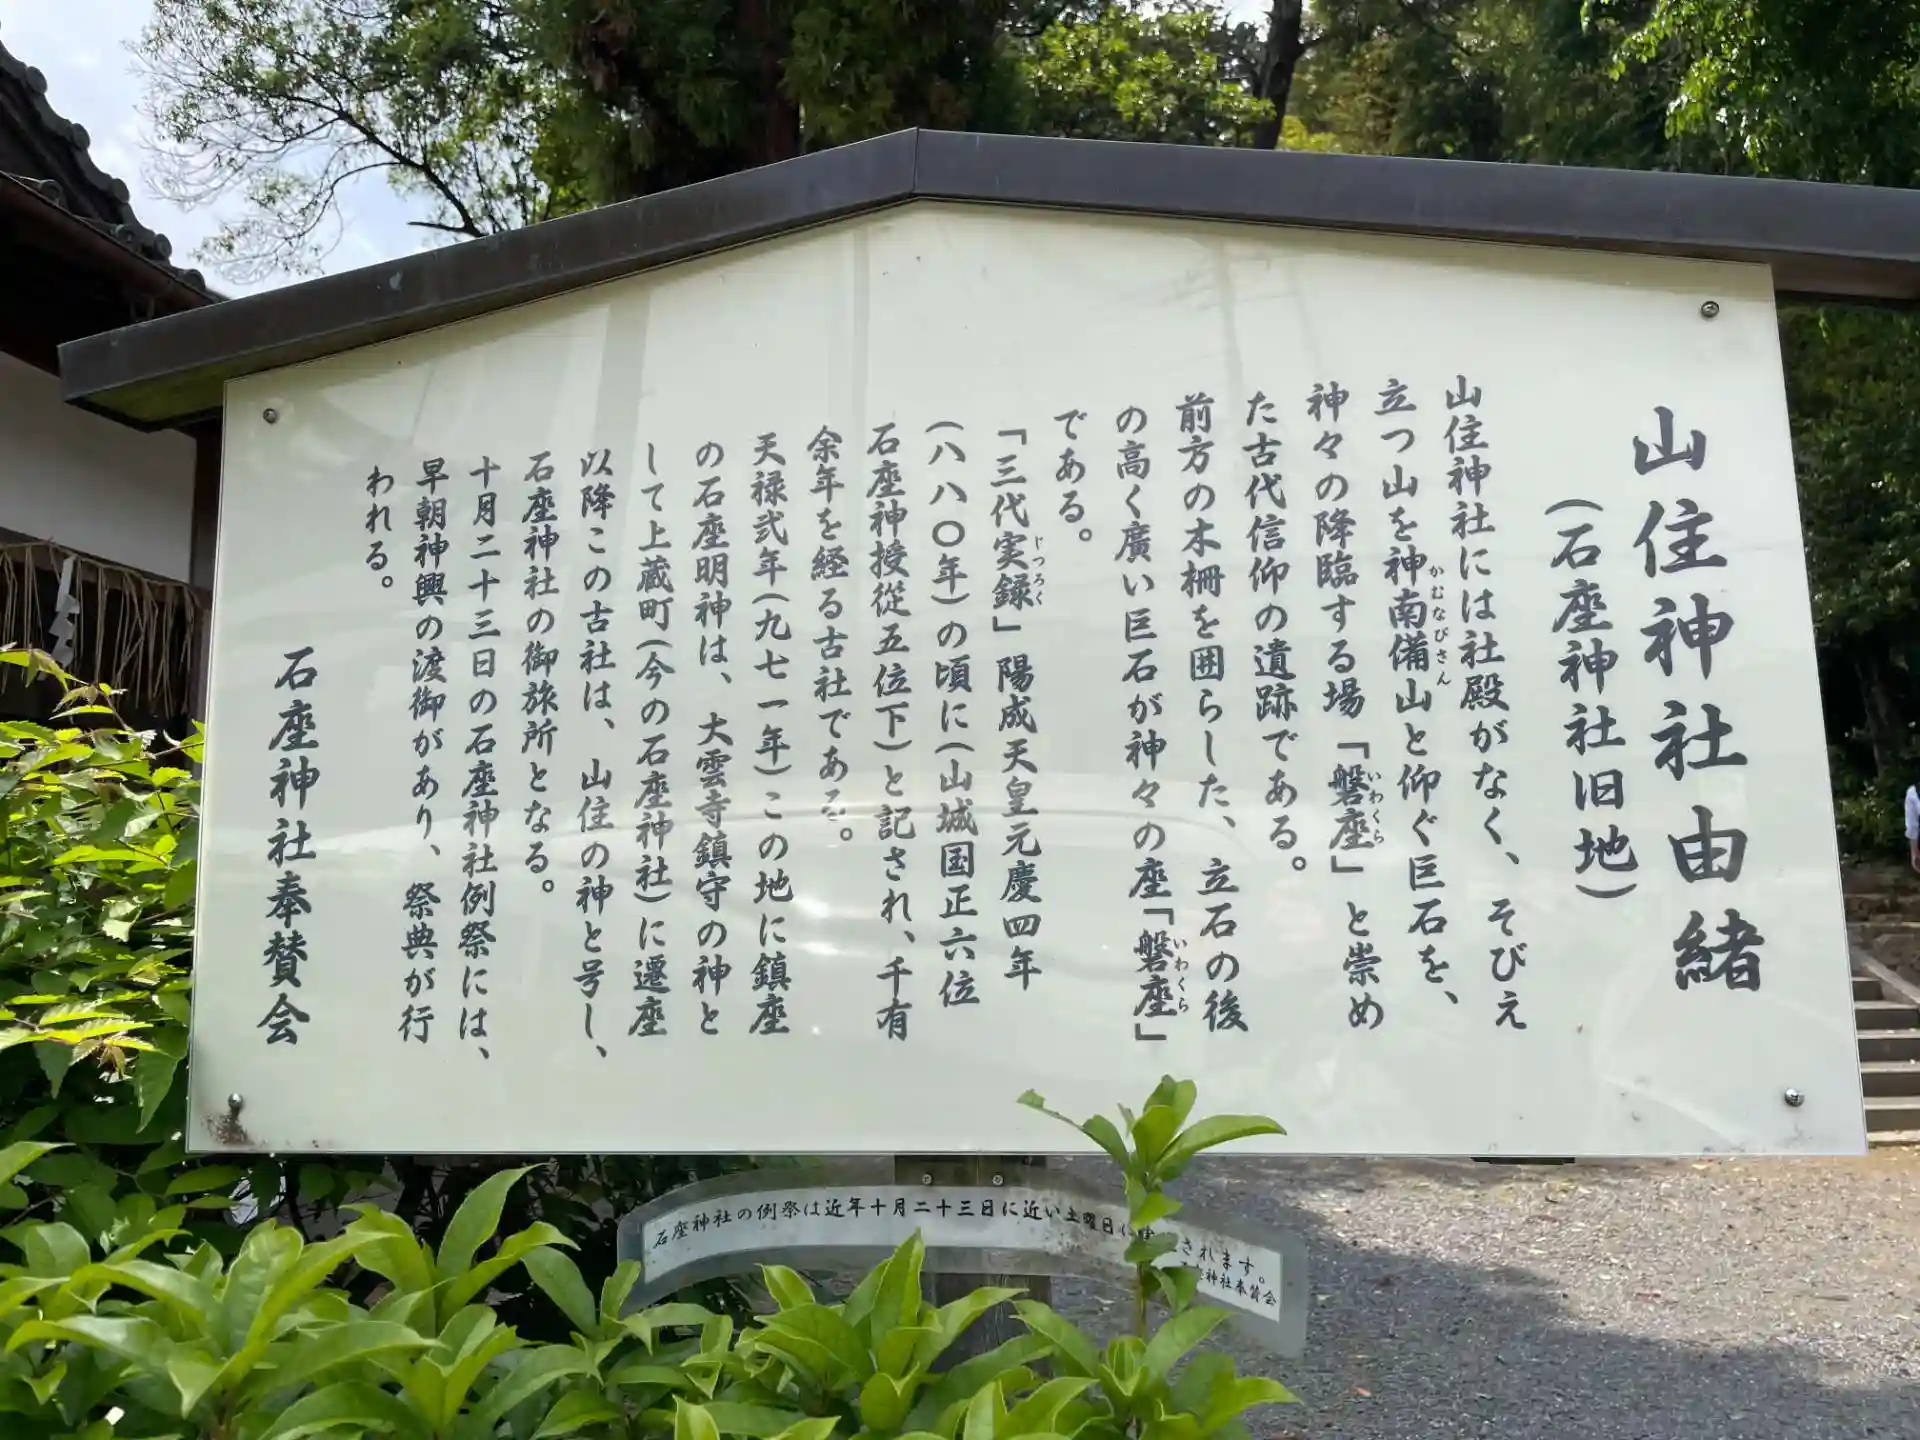 山住神社由緒
(石座神社旧地)
山住神社には社殿がなく、そびえ
立つ山を神南備山と仰ぐ巨石を、
かむなびさん
神々の降臨する場「磐座」と崇め
いわくら
た古代信仰の遺跡である。
前方の木柵を囲らした、立石の後
の高く廣い巨石が神々の座「磐座」
いわくら
である。
「三代実録」陽成天皇元慶四年
じつろく
(八八〇年)の頃に(山城国正六位
石座神授従五位下)と記され、千有
余年を経る古社である。
天禄弐年(九七一年)この地に鎮座
の石座明神は、大雲寺鎮守の神と
して上蔵町(今の石座神社)に遷座
以降この古社は、山住の神と号し、
石座神社の御旅所となる。
十月二十三日の石座神社例祭には、
早朝神輿の渡御があり、祭典が行
われる。
石座神社奉賛会
石座神社の例祭は近年十月二十三日に近い土曜日に されます。
神社奉賛会